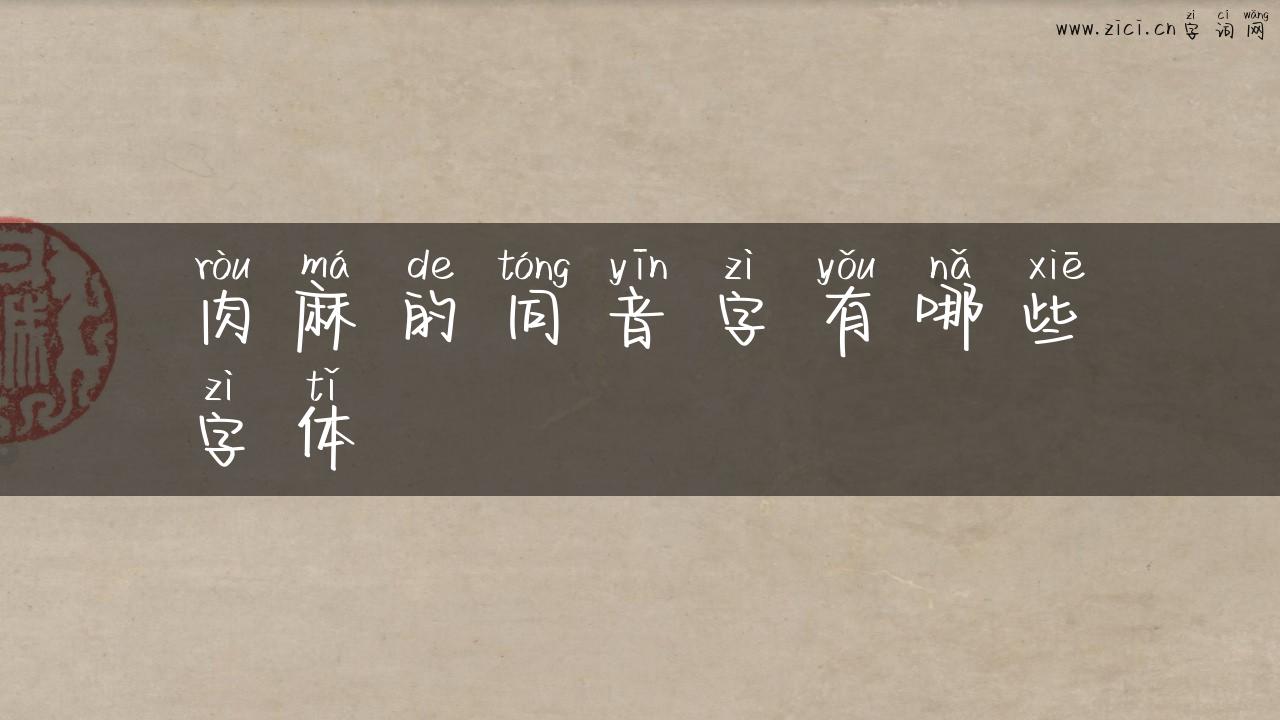 zì cí wǎng
www.zici.cn 字词网
ròu má de tóng yīn zì yǒu nǎ xiē
肉麻的同音字有哪些
zì tǐ
字体